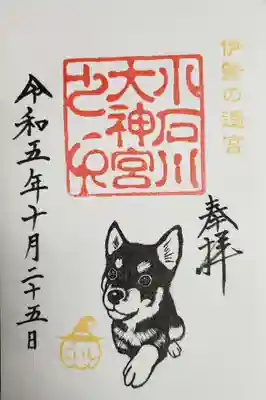 伊勢の遙宮
奉拝
小石川
大神宮
令和五年十月二十五日